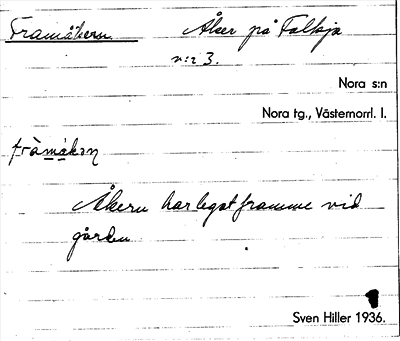 Framåkern Åker på Falkja
nr 3.
Nora s:n
Nora tg., Västernorrl. l.
fràmákɘn
Åkern har legat framme vid
gården
Sven Hiller 1936.